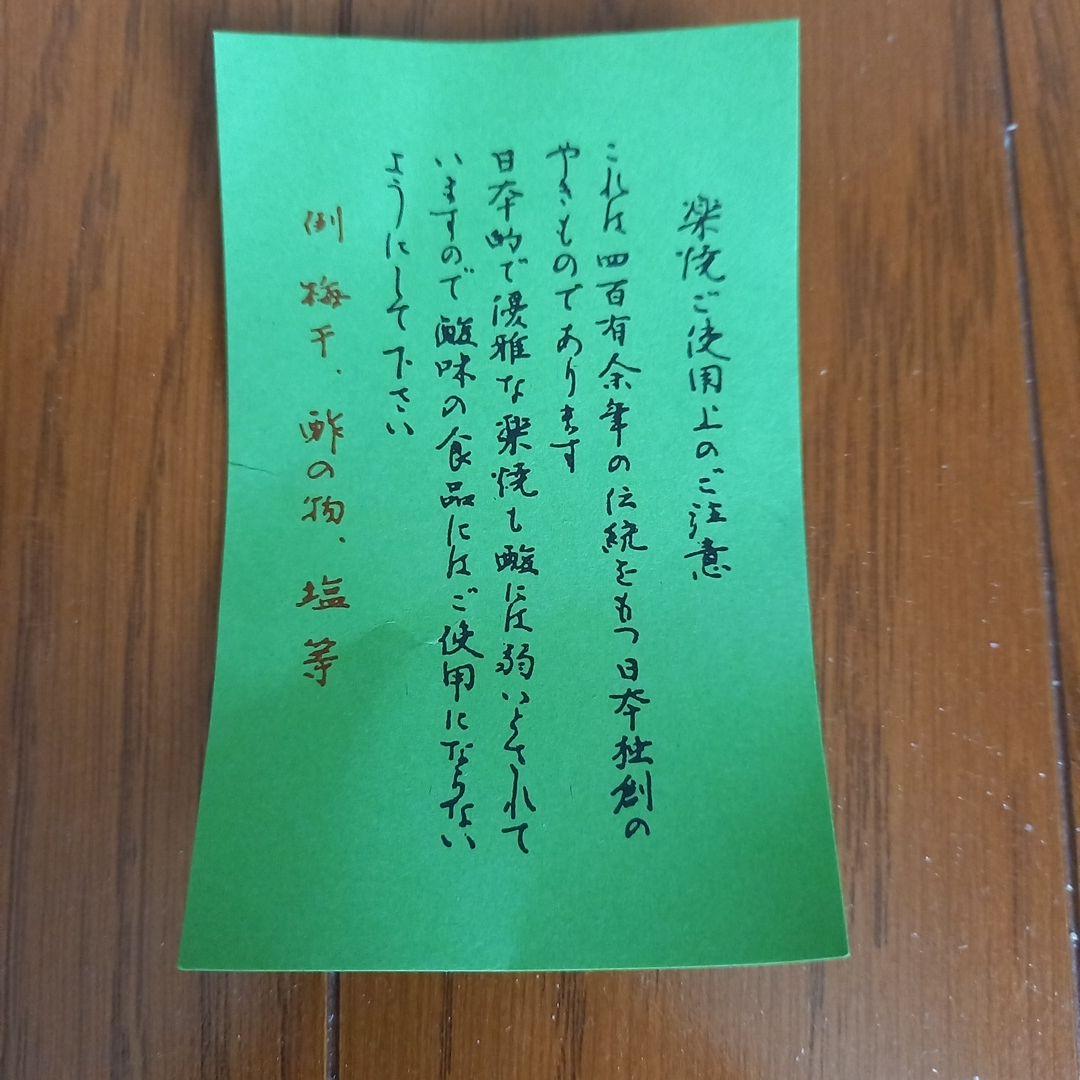 楽焼ご使用上のご注意
これは四百有余年の伝統をもつ日本独創の
やきものであります
日本的で優雅な楽焼も酸には弱いとされて
いますので酸味の食品にはご使用にならない
ようにして下さい
例 梅干、酢の物、塩等